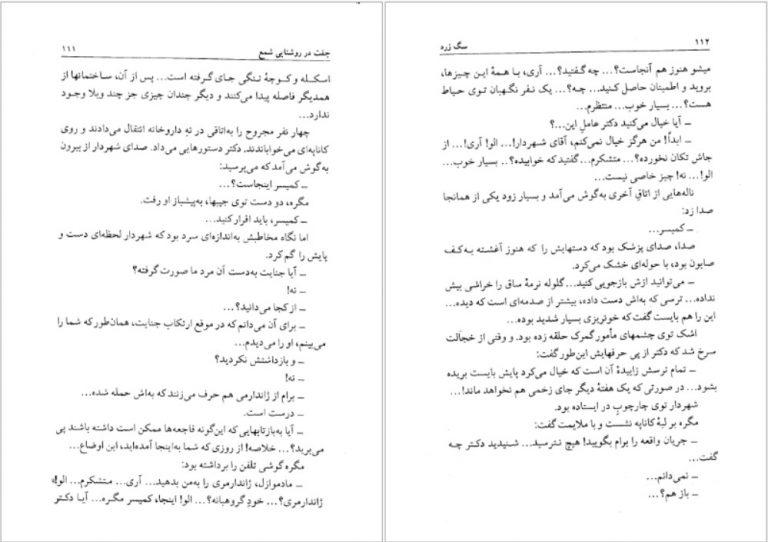 جفت در روشنایی شمع
۱۱۱
اسکله و کوچهٔ تنگی جای گرفته است... پس از آن، ساختمانها از
همدیگر فاصله پیدا می‌کنند و دیگر چندان چیزی جز چند ویلا وجود
ندارد...
چهار نفر مجروح را به‌اتاقی در تهِ داروخانه انتقال می‌دادند و روی
کاناپه‌ای می‌خواباندند. دکتر دستورهایی می‌داد. صدای شهردار از بیرون
به‌گوش می‌آمد که می‌پرسید:
ـ کمیسر اینجاست؟...
مگره، دو دست توی جیبها، به‌پیشباز او رفت.
ـ کمیسر، باید اقرار کنید...
اما نگاه مخاطبش به‌اندازه‌ای سرد بود که شهردار لحظه‌ای دست و
پایش را گم کرد.
ـ آیا جنایت به‌دست آن مرد ما صورت گرفته؟
ـ نه!
ـ از کجا می‌دانید؟...
ـ برای آن می‌دانم که در موقع ارتکاب جنایت، همان‌طور که شما را
می‌بینم، او را می‌دیدم...
ـ و بازداشتش نکردید؟
ـ نه!
ـ برام از ژاندارمی هم حرف می‌زنند که به‌اش حمله شده...
ـ درست است.
ـ آیا به‌بازتابهایی که این‌گونه فاجعه‌ها ممکن است داشته باشند پی
می‌برید؟... خلاصه! از روزی که شما به‌اینجا آمده‌اید، این اوضاع...
مگره گوشی تلفن را برداشته بود:
ـ مادموازل، ژاندارمری را به‌من بدهید... آری... متشکرم... الو!
ژاندارمری؟... خودِ گروهبانه؟... الو! اینجا، کمیسر مگره... آیا دکتو
۱۱۲
سگ زرد
میشو هنوز هم آنجاست؟... چه گفتید؟... آری، با همهٔ این چیزها،
بروید و اطمینان حاصل کنید... چه؟... یک نفر نگهبان توی حیاط
هست؟... بسیار خوب... منتظرم...
ـ آیا خیال می‌کنید دکتر عاملِ این...؟
ـ ابداً! من هرگز خیال نمی‌کنم، آقای شهردار!... الو! آری!... از
جاش تکان نخورده؟... متشکرم... گفتید که خوابیده؟.. بسیار خوب...
الو!... نه! چیز خاصی نیست...
ناله‌هایی از اتاقِ آخری به‌گوش می‌آمد و بسیار زود یکی از همانجا
صدا زد:
ـ کمیسر...
صدا، صدای پزشک بود که دستهایش را که هنوز آغشته به‌کف
صابون بود، با حوله‌ای خشک می‌کرد.
ـ می‌توانید ازش بازجویی کنید... گلوله نرمهٔ ساق را خراشی بیش
نداده... ترسی که به‌اش دست داده، بیشتر از صدمه‌ای است که دیده...
این را هم بایست گفت که خونریزی بسیار شدید بوده...
اشک توی چشمهای مأمور گمرک حلقه زده بود. و وقتی از خجالت
سرخ شد که دکتر از پی حرفهایش این‌طور گفت:
ـ تمام ترسش زاییدهٔ آن است که خیال می‌کرد پایش بایست بریده
بشود... در صورتی که یک هفتهٔ دیگر جای زخمی هم نخواهد ماند!...
شهردار توی چارچوبِ در ایستاده بود.
مگره بر لبهٔ کاناپه نشست و با ملایمت گفت:
ـ جریان واقعه را برام بگویید! هیچ نترسید... شنیدید دکتر چه
گفت...
ـ نمی‌دانم...
ـ باز هم؟...